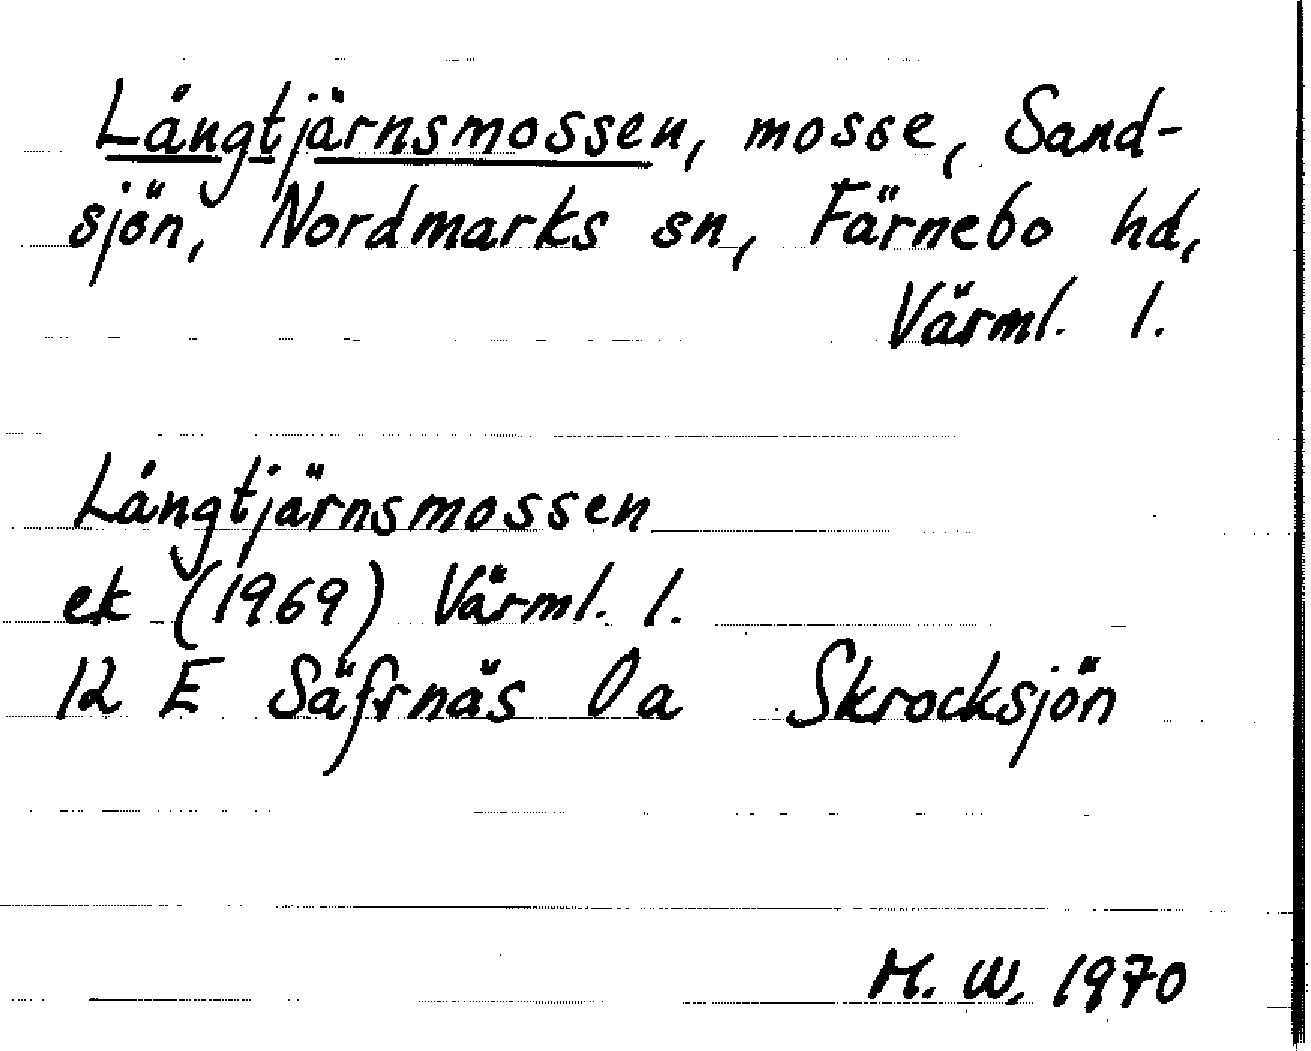 Långtjärnsmossen, mosse, Sand-
sjön, Nordmarks sn, Färnebo hd,
Värml. l.
Långtjärnsmossen
ek (1969) Värml. l.
12 E Säfsnäs 0 a Skrocksjön
M. W. 1970